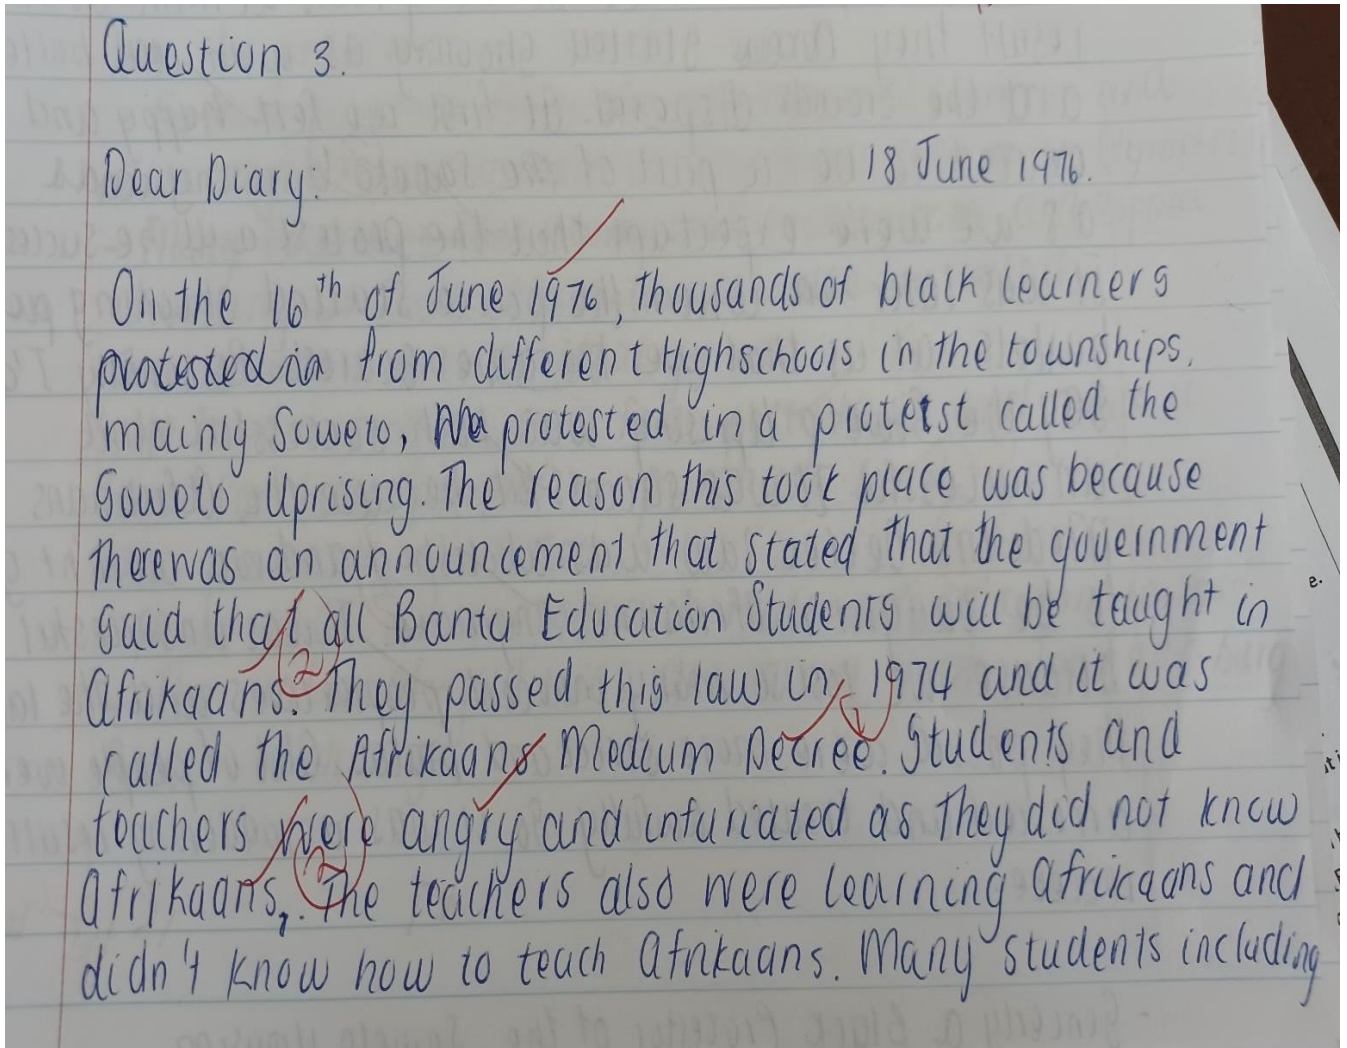 Question 3.
Dear Diary: 18 June 1976.
On the 16th of June 1976, thousands of black learners
protested in from different Highschools in the townships.
mainly Soweto, We protested in a protetst called the
Soweto Uprising. The reason this took place was because
therewas an announcement that stated that the government
said that all Bantu Education Students will be taught in
Afrikaans. They passed this law in 1974 and it was
called the Afrikaans Medium Decree. Students and
teachers were angry and infuriated as they did not know
Afrikaans,. The teachers also were learning Afrikaans and
didn't know how to teach Afrikaans. Many students including